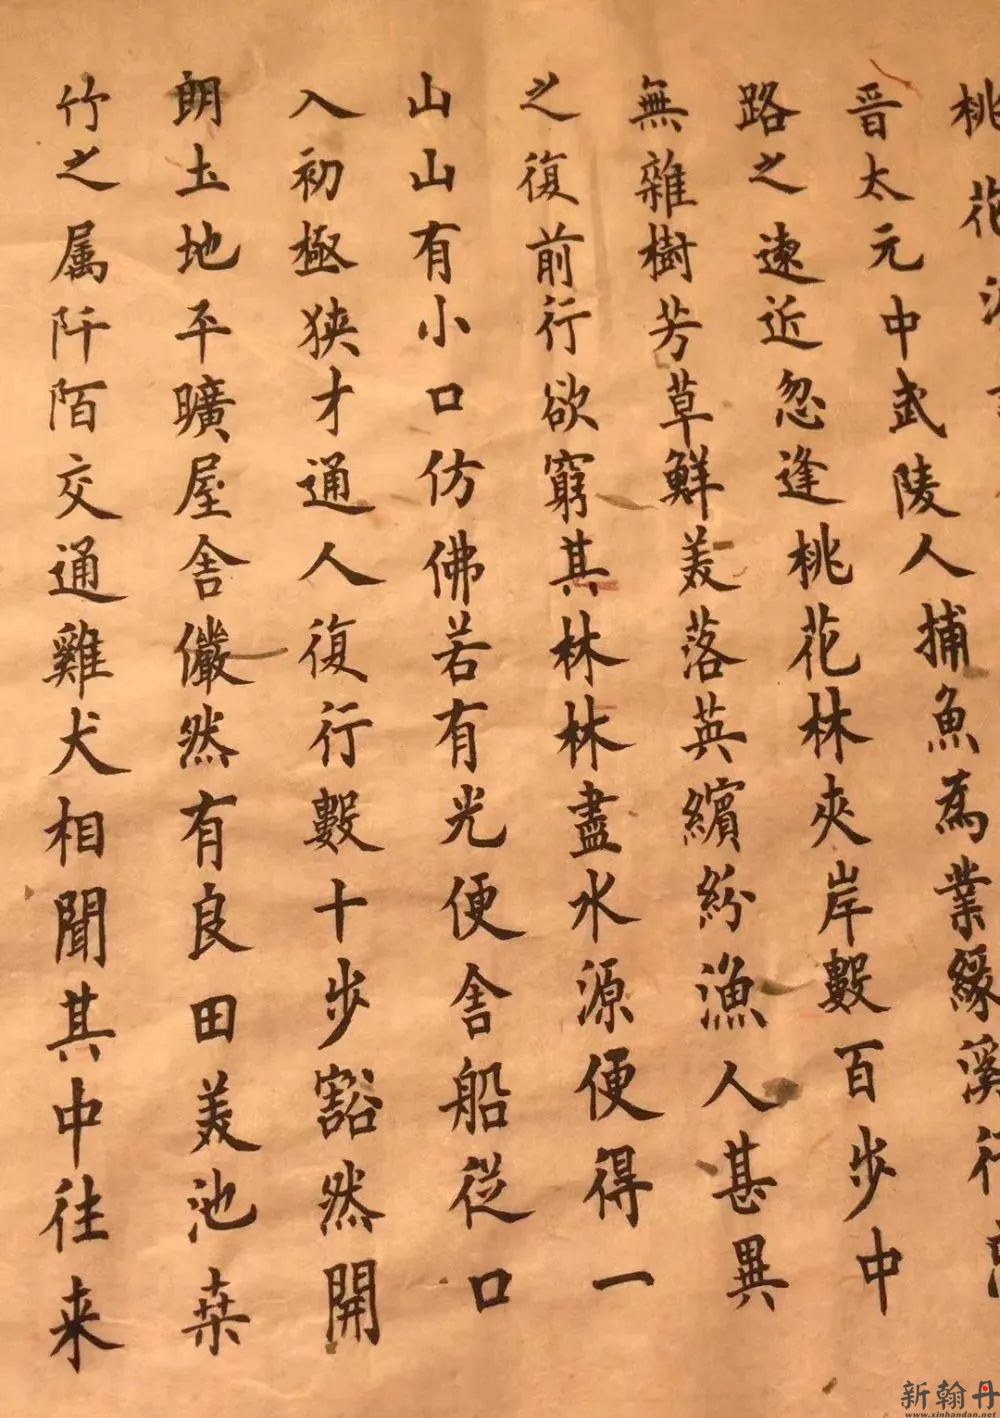 桃花
晋太元中武陵人捕魚為業緣溪行
路之遠近忽逢桃花林夾岸數百步中
無雜樹芳草鮮美落英繽紛漁人甚異
之復前行欲窮其林林盡水源便得一
山山有小口仿佛若有光便舍船從口
入初極狭才通人復行數十步豁然開
朗土地平曠屋舍儼然有良田美池桒
竹之属阡陌交通雞犬相聞其中往来
新翰丹
www.xinhandan.net